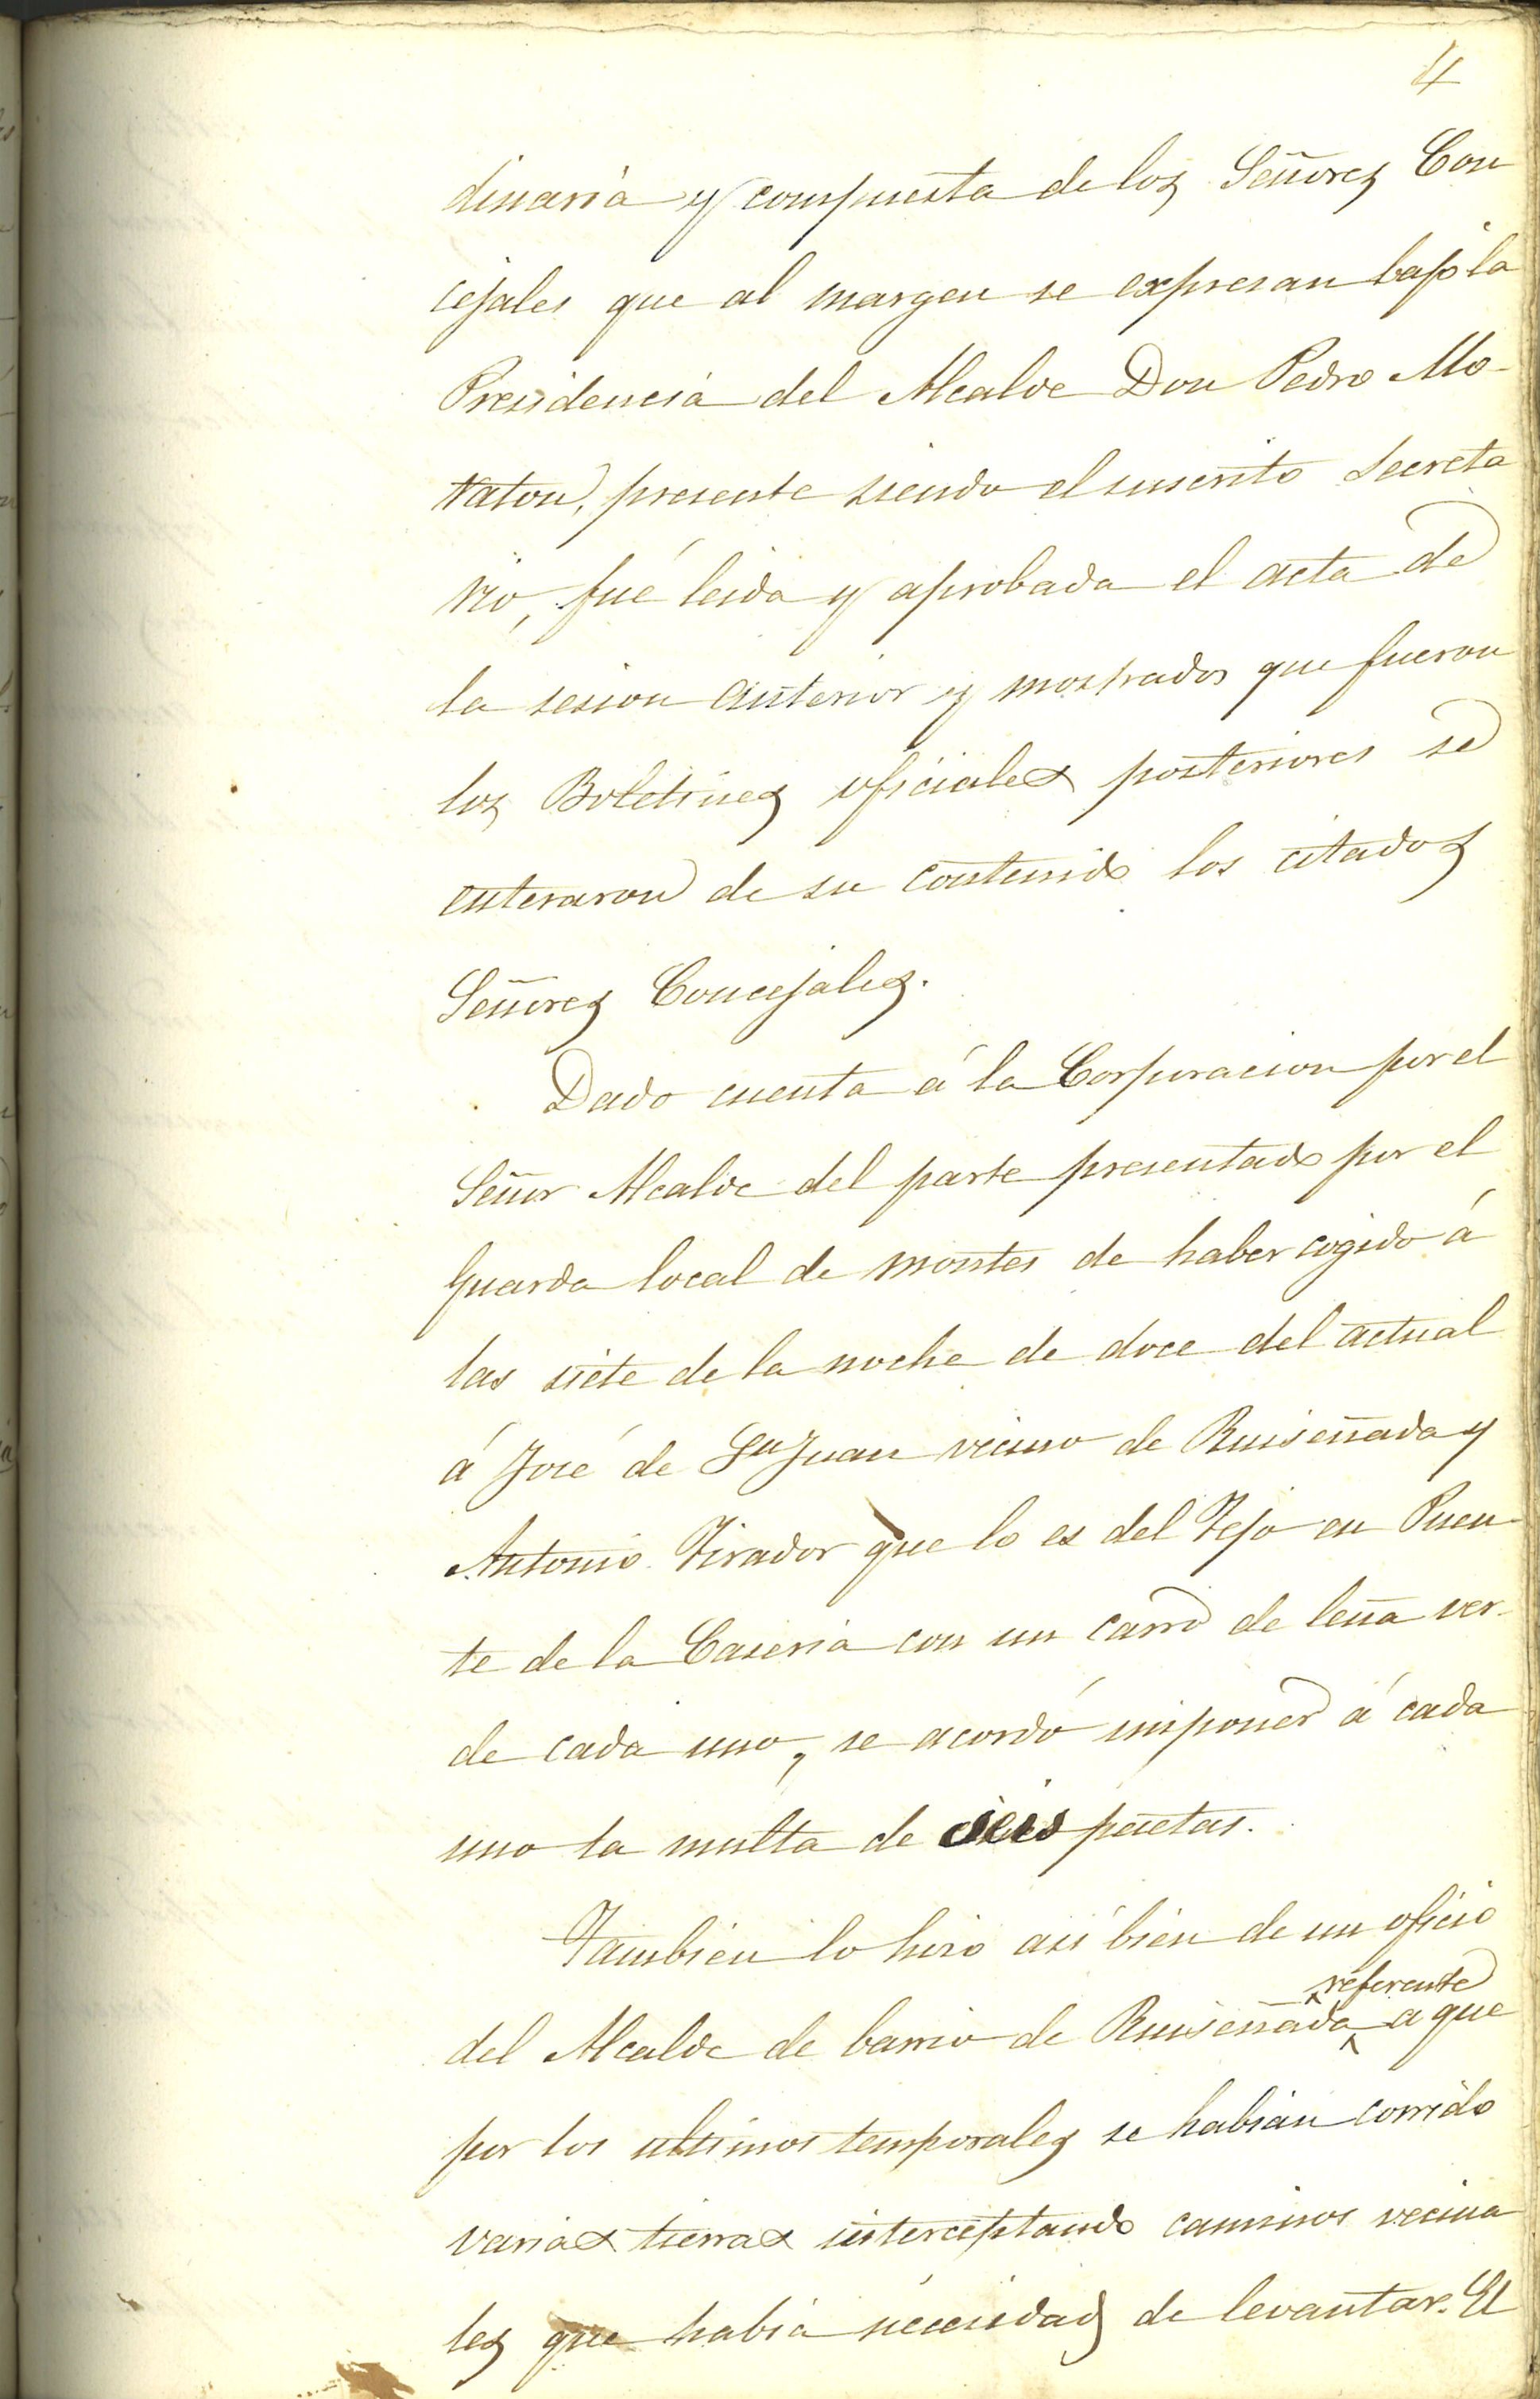 4
dinaria y compuesta de los Señores Con
cejales que al margen se expresan bajo la
Presidencia del Alcalde Don Pedro Mo-
natou, presente siendo el suscrito Secreta
rio, fué leida y aprobada el acta de
la sesion anterior y mostrados que fueron
los Boletines oficiales posteriores se
enteraron de su contenido los citados
Señores Concejales.
Dado cuenta á la Corporacion por el
Señor Alcalde del parte presentado por el
Guarda local de montes de haber cogido á
las siete de la noche de doce del actual
á José de Sn Juan vecino de Ruiseñada y
Antonio Tirador que lo es del Tejo en Puen-
te de la Caseria con un carro de leña ver-
de cada uno, se acordó imponer á cada
uno la multa de seis pesetas.
Tambien lo hizo asi bien de un oficio
referente
del Alcalde de barrio de Ruiseñada a que
por los ultimos temporales se habian corrido
varias tierras interceptando caminos vecina
les que habia necesidad de levantar. El